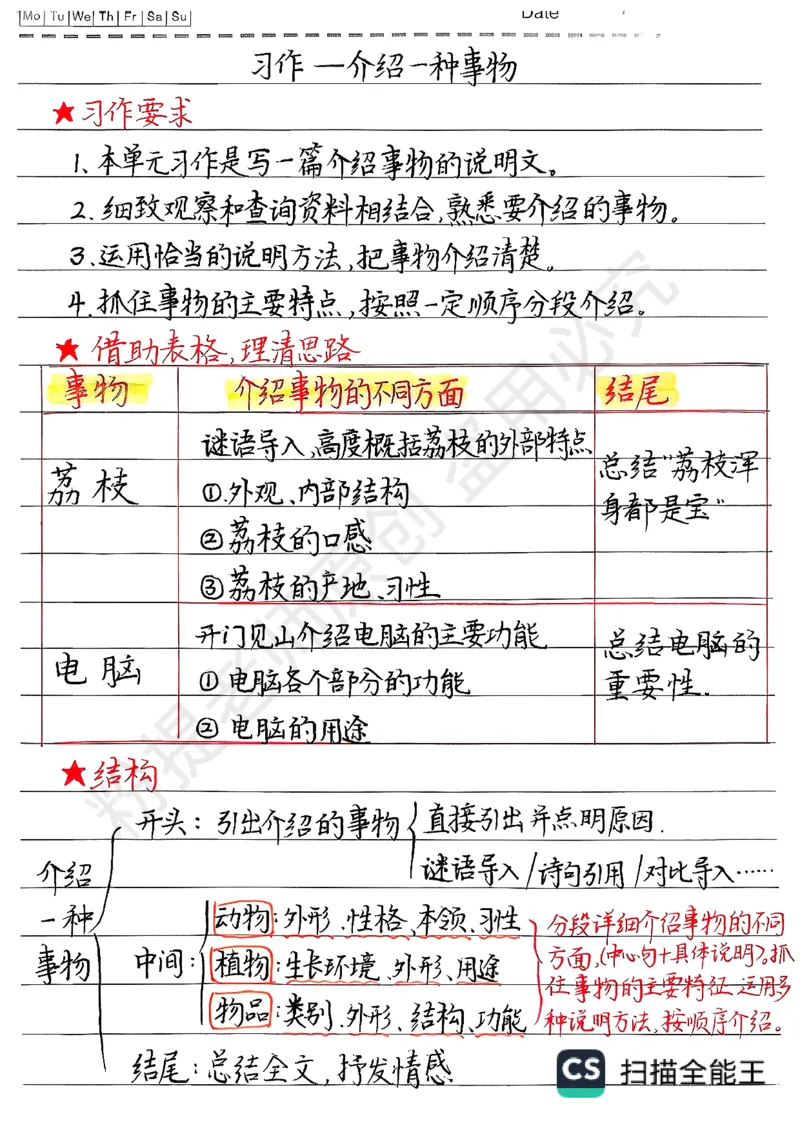 Mo Tu We Th Fr Sa Su
Date
习作一介绍一种事物
★习作要求
1、本单元习作是写一篇介绍事物的说明文。
2.细致观察和查询资料相结合,熟悉要介绍的事物。
3.运用恰当的说明方法,把事物介绍清楚。
4.抓住事物的主要特点,按照一定顺序分段介绍。
★借助表格,理清思路
事物 介绍事物的不同方面 结尾
荔枝
谜语导入,高度概括荔枝的外部特点
①.外观、内部结构
②荔枝的口感
③荔枝的产地、习性
总结“荔枝浑
身都是宝”
电脑
开门见山介绍电脑的主要功能
①电脑各个部分的功能
②电脑的用途
总结电脑的
重要性.
★结构
介绍
一种
事物
开头:引出介绍的事物
直接引出并点明原因.
谜语导入/诗句引用/对比导入……
中间:
动物:外形、性格、本领、习性
植物:生长环境、外形、用途
物品:类别、外形、结构、功能
分段详细介绍事物的不同
方面,(中心句+具体说明)。抓
住事物的主要特征.运用多
种说明方法,按顺序介绍。
结尾:总结全文,抒发情感
CS 扫描全能王